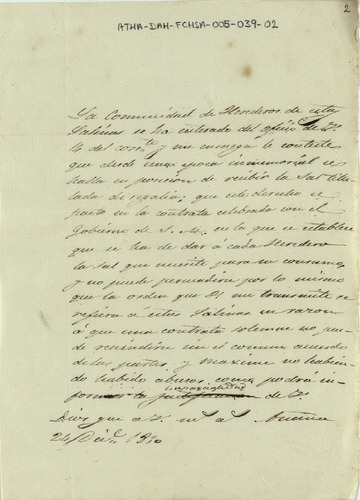 ATHA-DAH-FCHSA-005-039-02
2
La Comunidad de Herederos de estas
Salinas se ha enterado del oficio de V.
14 del corrte y me encarga le conteste
que desde una epoca inmemorial se
halla en posesion de recibir la Sal titu
lada de regalia; que este derecho se
pacto en la contrata celebrada con el
Gobierno de S. M. en la que se establece
que se ha de dar a cada Heredero
la Sal que necesite para su consumo,
y no puede persuadirse por lo mismo
que la orden que V. me transmite se
refiera a estas Salinas en razon
á que una contrata solemne no pue
de rescindirse sin el comun acuerdo
de las partes, y maxime no habien
do habido abusos como podrá in
formar la de V.
Dios gue a V. ms as Añana
24 Dice 1850